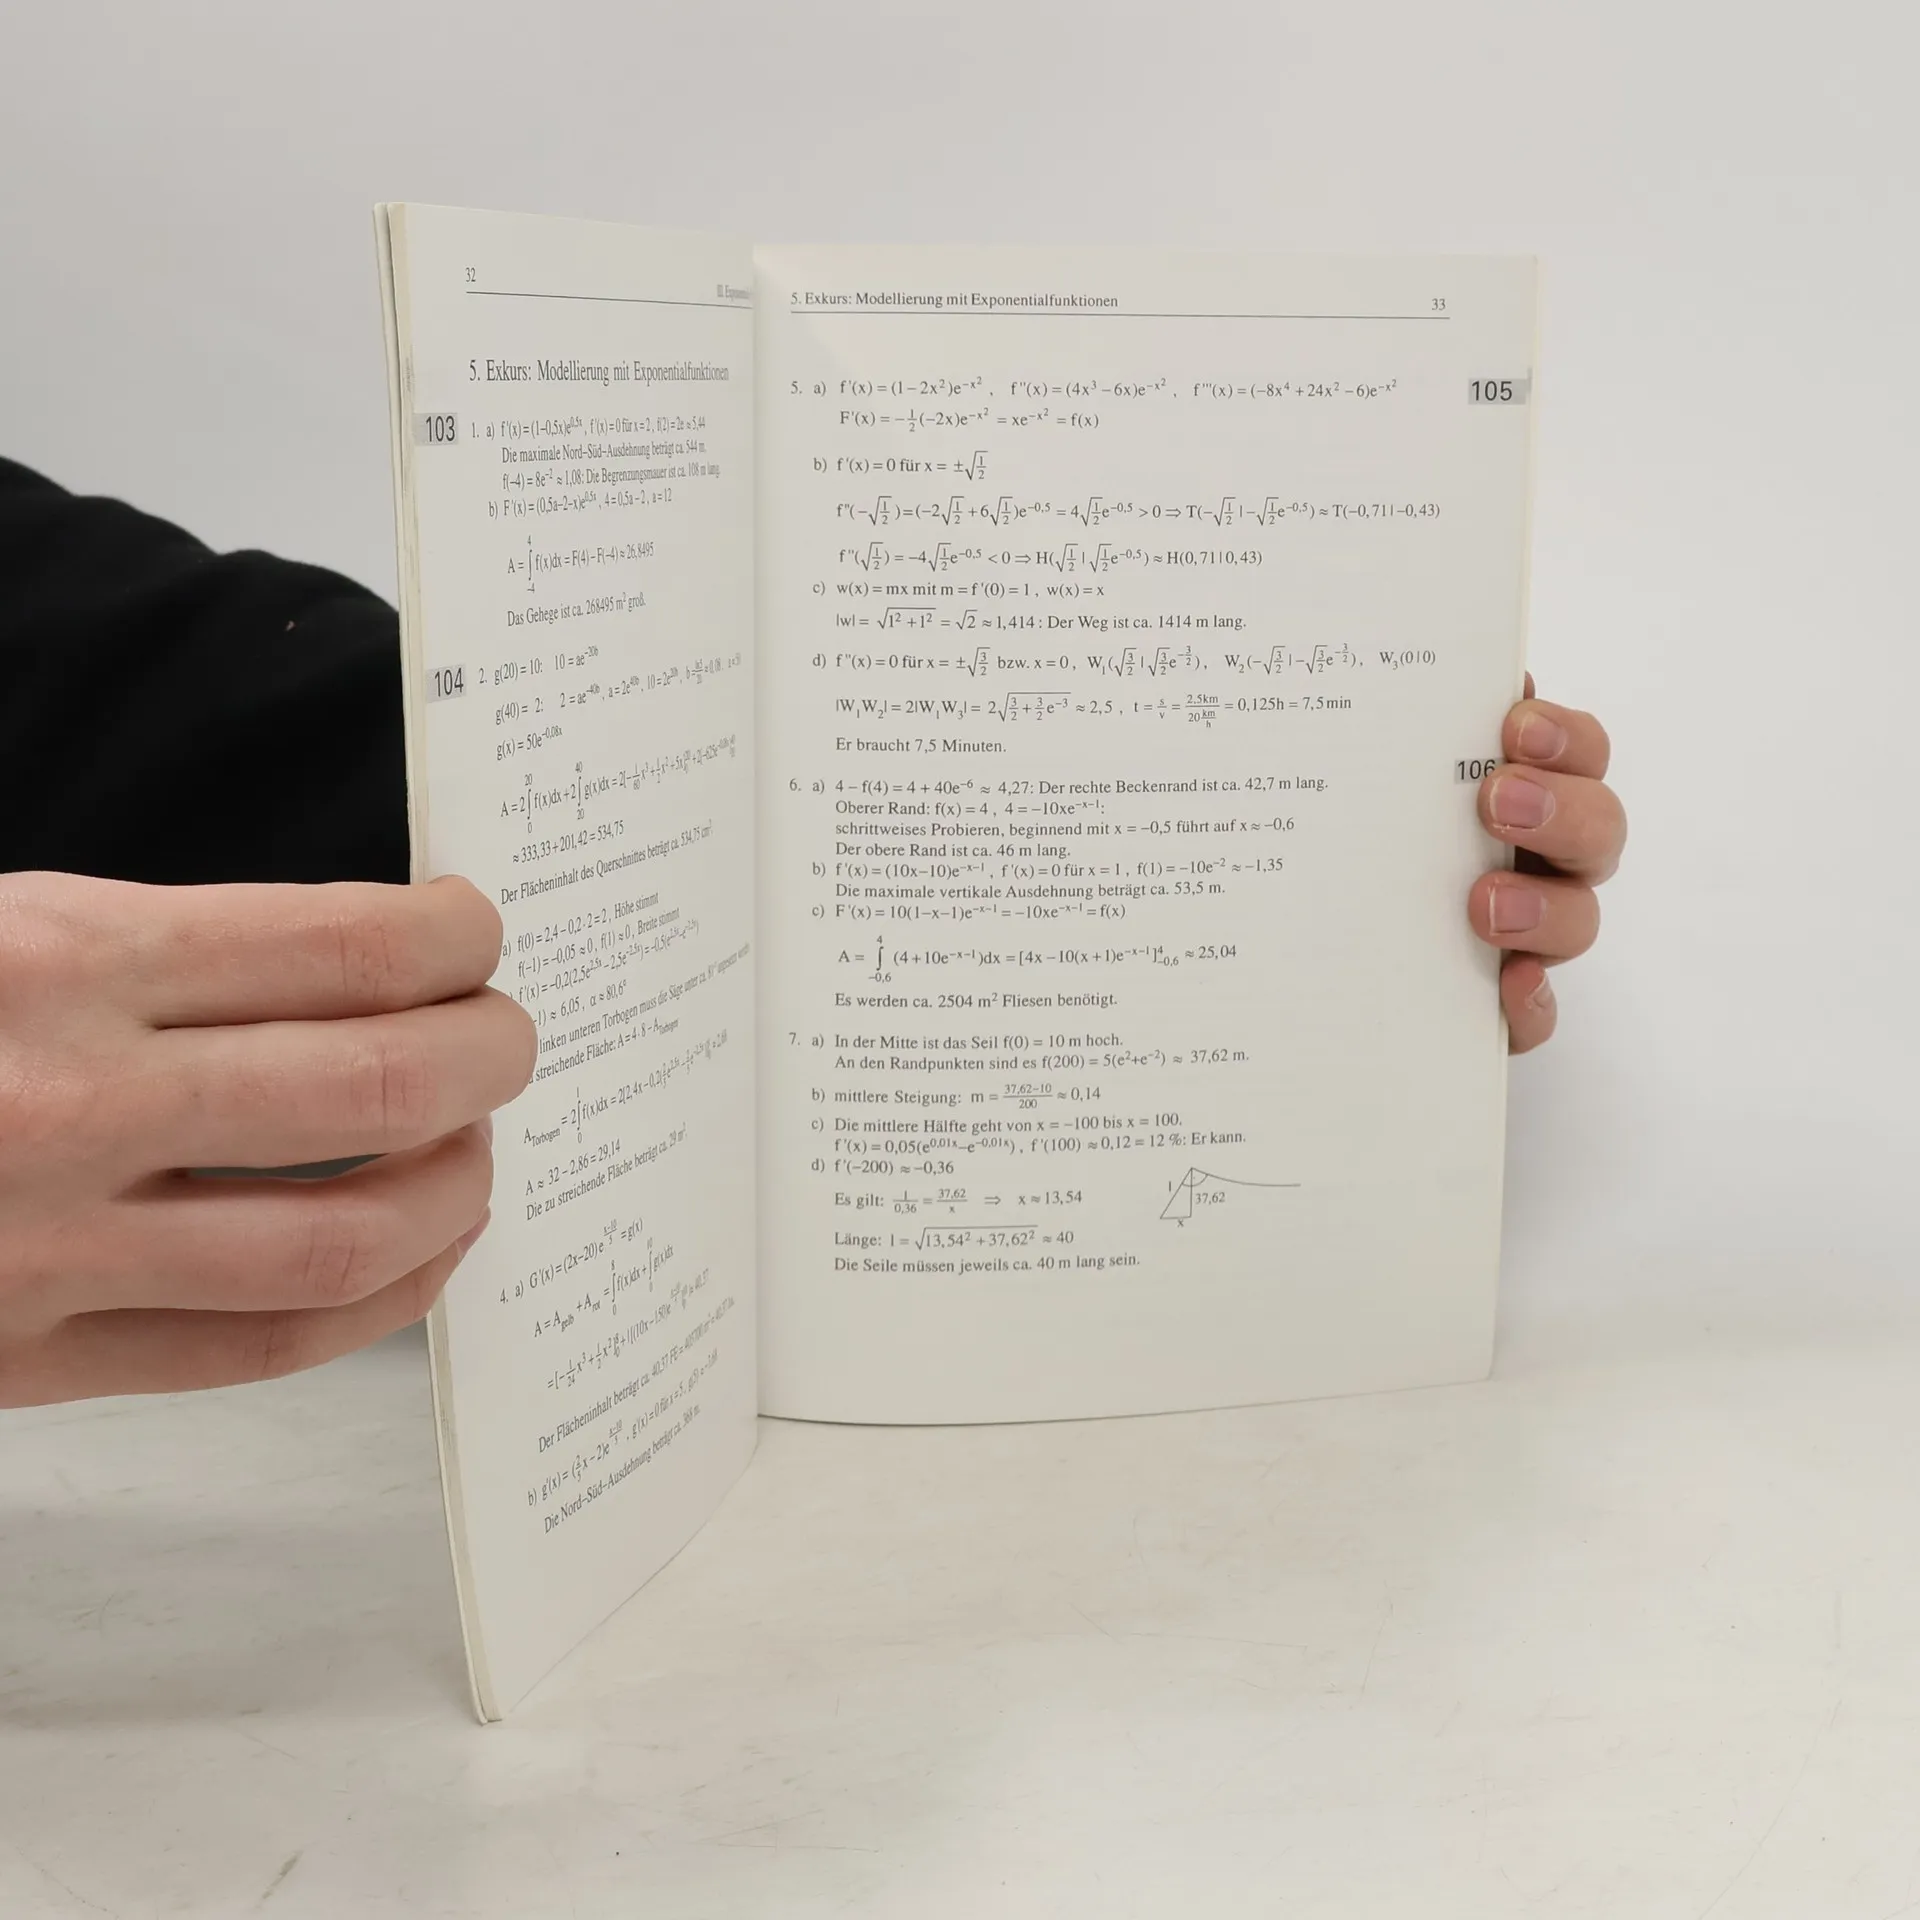 32
5. Exkurs: Modellierung mit Exponentialfunktionen
103
1. a) f'(x)=(1–0,5x)e^{0,5x}, f'(x)=0 für x=2, f(2)=2e≈5,44
Die maximale Nord–Süd–Ausdehnung beträgt ca. 544 m.
f(–4)=8e^{–2}≈1,08: Die Begrenzungsmauer ist ca. 108 m lang.
b) F'(x)=(0,5a–2–x)e^{0,5x}, 4=0,5a–2, a=12
A=∫_{–4}^{4} f(x)dx=F(4)–F(–4)≈26,8495
Das Gehege ist ca. 268495 m² groß.
104
2. g(20)=10: 10=ae^{–20b}
g(40)= 2: 2=ae^{–40b}, a=2e^{40b}, 10=2e^{20b}
g(x)=50e^{–0,08x}
A=2∫_{0}^{20} f(x)dx+2∫_{20}^{40} g(x)dx
≈333,33+201,42=534,75
Der Flächeninhalt des Querschnittes beträgt ca. 534,75 cm²
a) f(0)=2,4–0,2·2=2, Höhe stimmt
f(–1)=–0,05≈0, f(1)≈0, Breite stimmt
f'(x)=–0,2(2,5e^{2,5x}–2,5e^{–2,5x})=–0,5(e^{2,5x}–e^{–2,5x})
–1)≈6,05, α≈80,6°
linken unteren Torbogen muss die Säge unter ca.
streichende Fläche: A=4·8–A_{Torbogen}
A_{Torbogen}=2∫_{0}^{1} f(x)dx
A≈32–2,86=29,14
Die zu streichende Fläche beträgt ca. 29 m².
4. a) G'(x)=(2x–20)e^{\frac{x–10}{5}}=g(x)
A=A_{gelb}+A_{rot}=∫_{0}^{8} f(x)dx+∫_{0}^{10} g(x)dx
Der Flächeninhalt beträgt ca. 40,37 FE
b) g'(x)=(\frac{2}{5}x–2)e^{\frac{x–10}{5}}, g'(x)=0 für x=5
Die Nord–Süd–Ausdehnung beträgt ca. 368 m.
5. Exkurs: Modellierung mit Exponentialfunktionen 33
105
5. a) f'(x)=(1–2x²)e^{–x²}, f''(x)=(4x³–6x)e^{–x²}, f'''(x)=(–8x⁴+24x²–6)e^{–x²}
F'(x)=–\frac{1}{2}(–2x)e^{–x²}=xe^{–x²}=f(x)
b) f'(x)=0 für x=±√\frac{1}{2}
f''(–√\frac{1}{2})=(–2√\frac{1}{2}+6√\frac{1}{2})e^{–0,5}=4√\frac{1}{2}e^{–0,5}>0⇒T(–√\frac{1}{2}|–√\frac{1}{2}e^{–0,5})≈T(–0,71|–0,43)
f''(√\frac{1}{2})=–4√\frac{1}{2}e^{–0,5}<0⇒H(√\frac{1}{2}|√\frac{1}{2}e^{–0,5})≈H(0,71|0,43)
c) w(x)=mx mit m=f'(0)=1, w(x)=x
|w|=√{1²+1²}=√2≈1,414: Der Weg ist ca. 1414 m lang.
d) f''(x)=0 für x=±√\frac{3}{2} bzw. x=0, W₁(√\frac{3}{2}|√\frac{3}{2}e^{–\frac{3}{2}}), W₂(–√\frac{3}{2}|–√\frac{3}{2}e^{–\frac{3}{2}}), W₃(0|0)
|W₁W₂|=2|W₁W₃|=2√{\frac{3}{2}+\frac{3}{2}e^{–3}}≈2,5, t=\frac{s}{v}=\frac{2,5km}{20\frac{km}{h}}=0,125h=7,5min
Er braucht 7,5 Minuten.
106
6. a) 4–f(4)=4+40e^{–6}≈4,27: Der rechte Beckenrand ist ca. 42,7 m lang.
Oberer Rand: f(x)=4, 4=–10xe^{–x–1}:
schrittweises Probieren, beginnend mit x=–0,5 führt auf x≈–0,6
Der obere Rand ist ca. 46 m lang.
b) f'(x)=(10x–10)e^{–x–1}, f'(x)=0 für x=1, f(1)=–10e^{–2}≈–1,35
Die maximale vertikale Ausdehnung beträgt ca. 53,5 m.
c) F'(x)=10(1–x–1)e^{–x–1}=–10xe^{–x–1}=f(x)
A=∫_{–0,6}^{4}(4+10e^{–x–1})dx=[4x–10(x+1)e^{–x–1}]_{–0,6}^{4}≈25,04
Es werden ca. 2504 m² Fliesen benötigt.
7. a) In der Mitte ist das Seil f(0)=10 m hoch.
An den Randpunkten sind es f(200)=5(e²+e^{–2})≈37,62 m.
b) mittlere Steigung: m=\frac{37,62–10}{200}≈0,14
c) Die mittlere Hälfte geht von x=–100 bis x=100.
f'(x)=0,05(e^{0,01x}–e^{–0,01x}), f'(100)≈0,12=12 %: Er kann.
d) f'(–200)≈–0,36
Es gilt: \frac{1}{0,36}=\frac{37,62}{x} ⇒ x≈13,54
l 37,62
x
Länge: l=√{13,54²+37,62²}≈40
Die Seile müssen jeweils ca. 40 m lang sein.